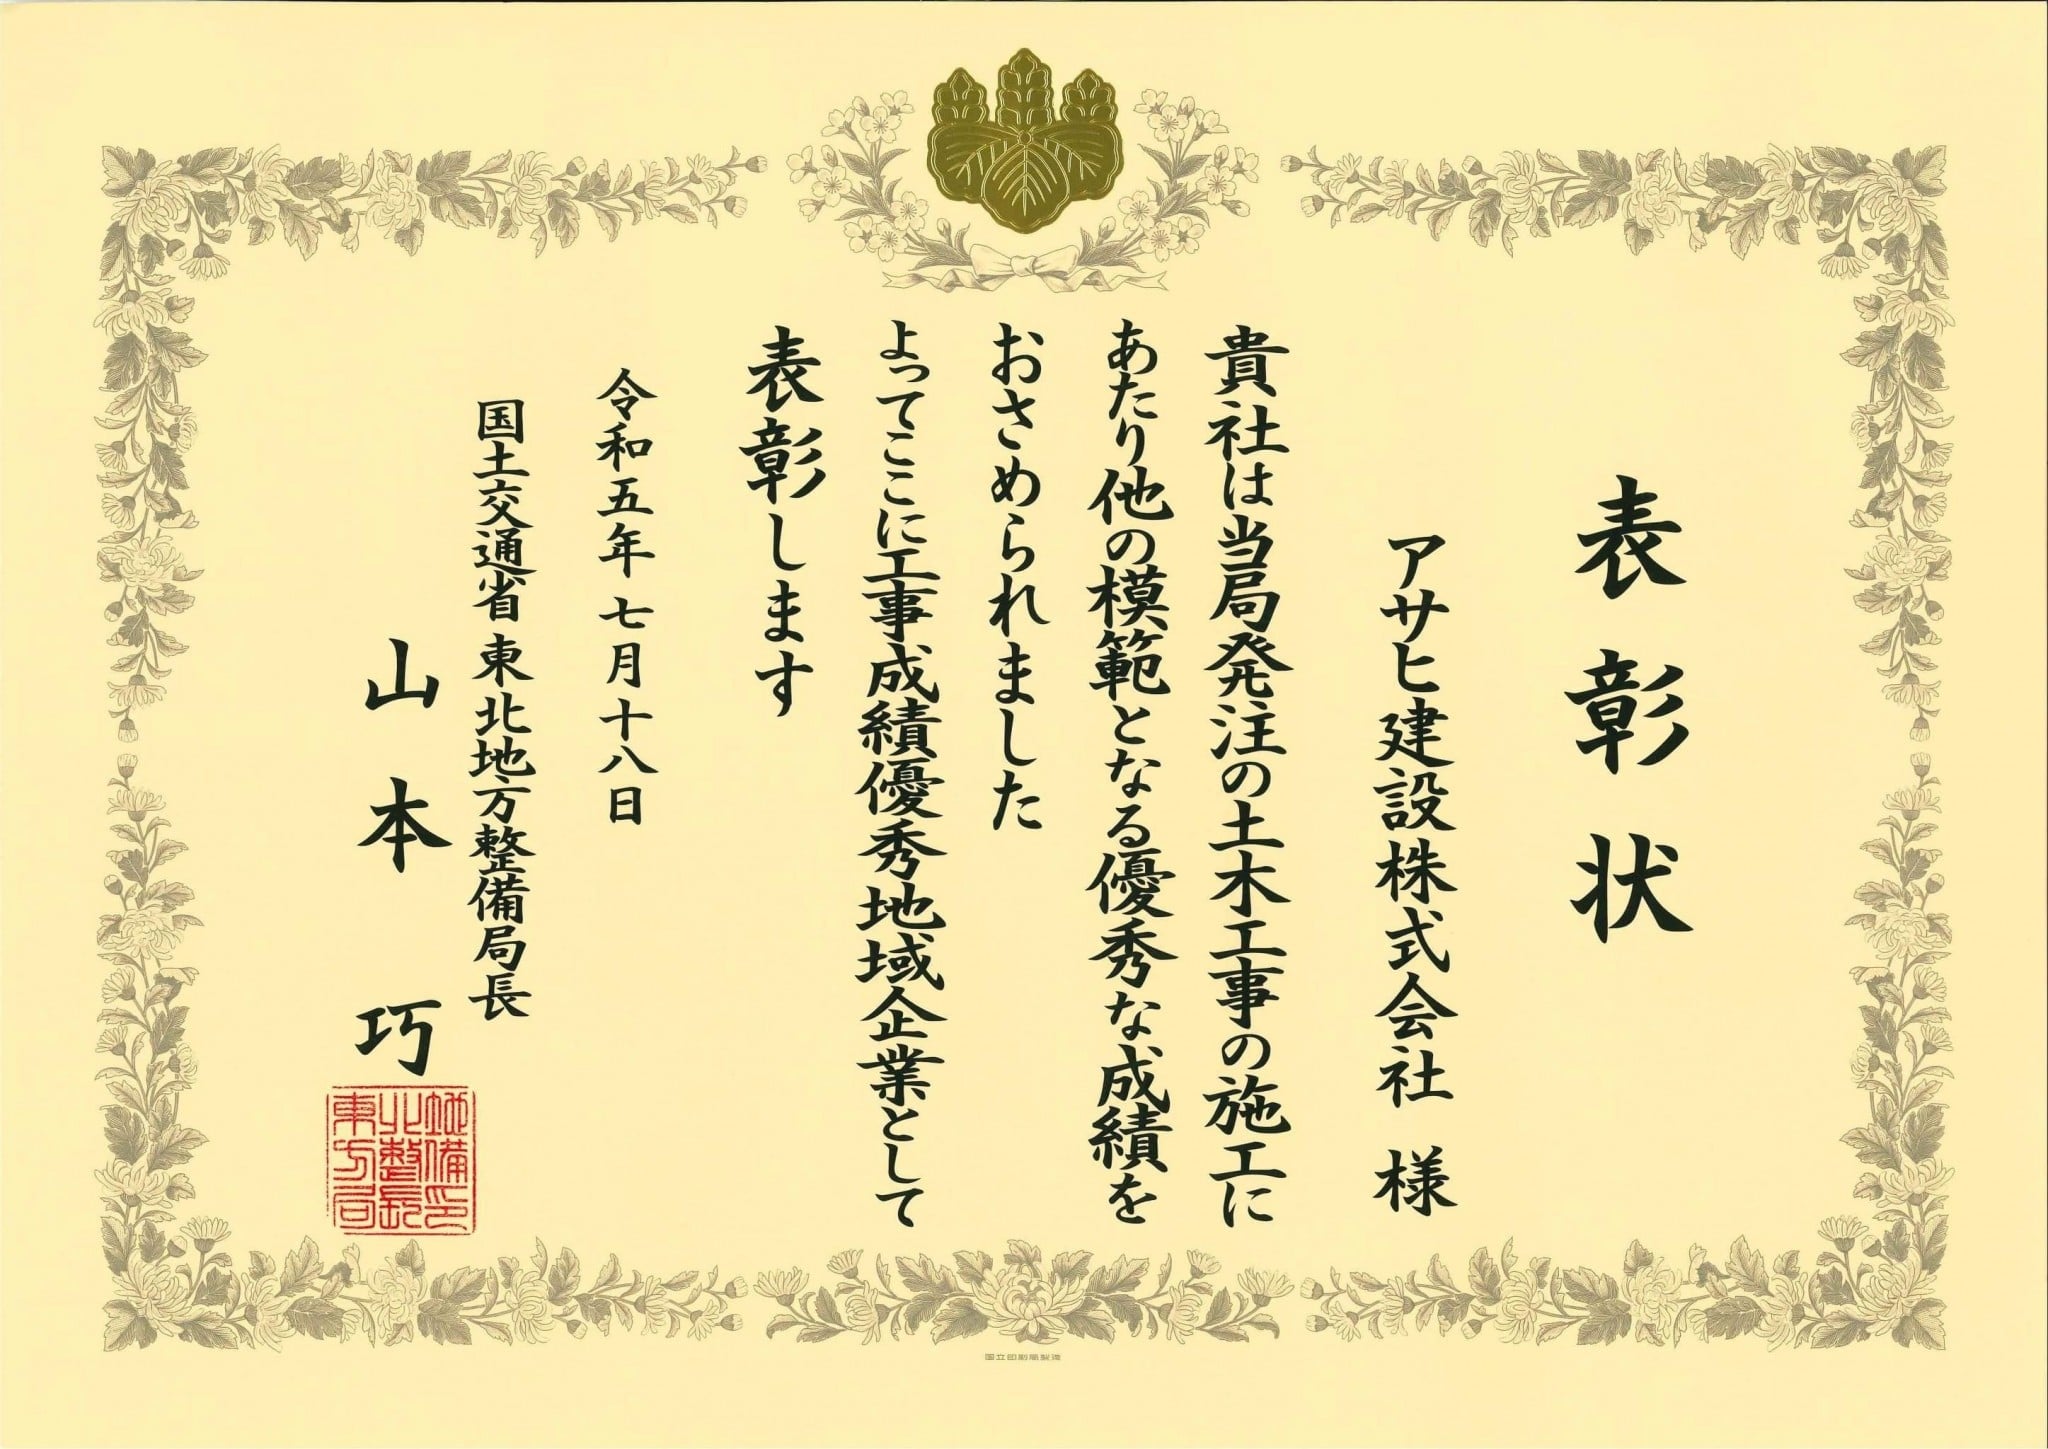 表彰状
アサヒ建設株式会社 様
貴社は当局発注の土木工事の施工に
あたり他の模範となる優秀な成績を
おさめられました
よってここに工事成績優秀地域企業として
表彰します
令和五年 七月十八日
国土交通省 東北地方整備局長
山本 巧
東北地方整備局長印
国立印刷局製造